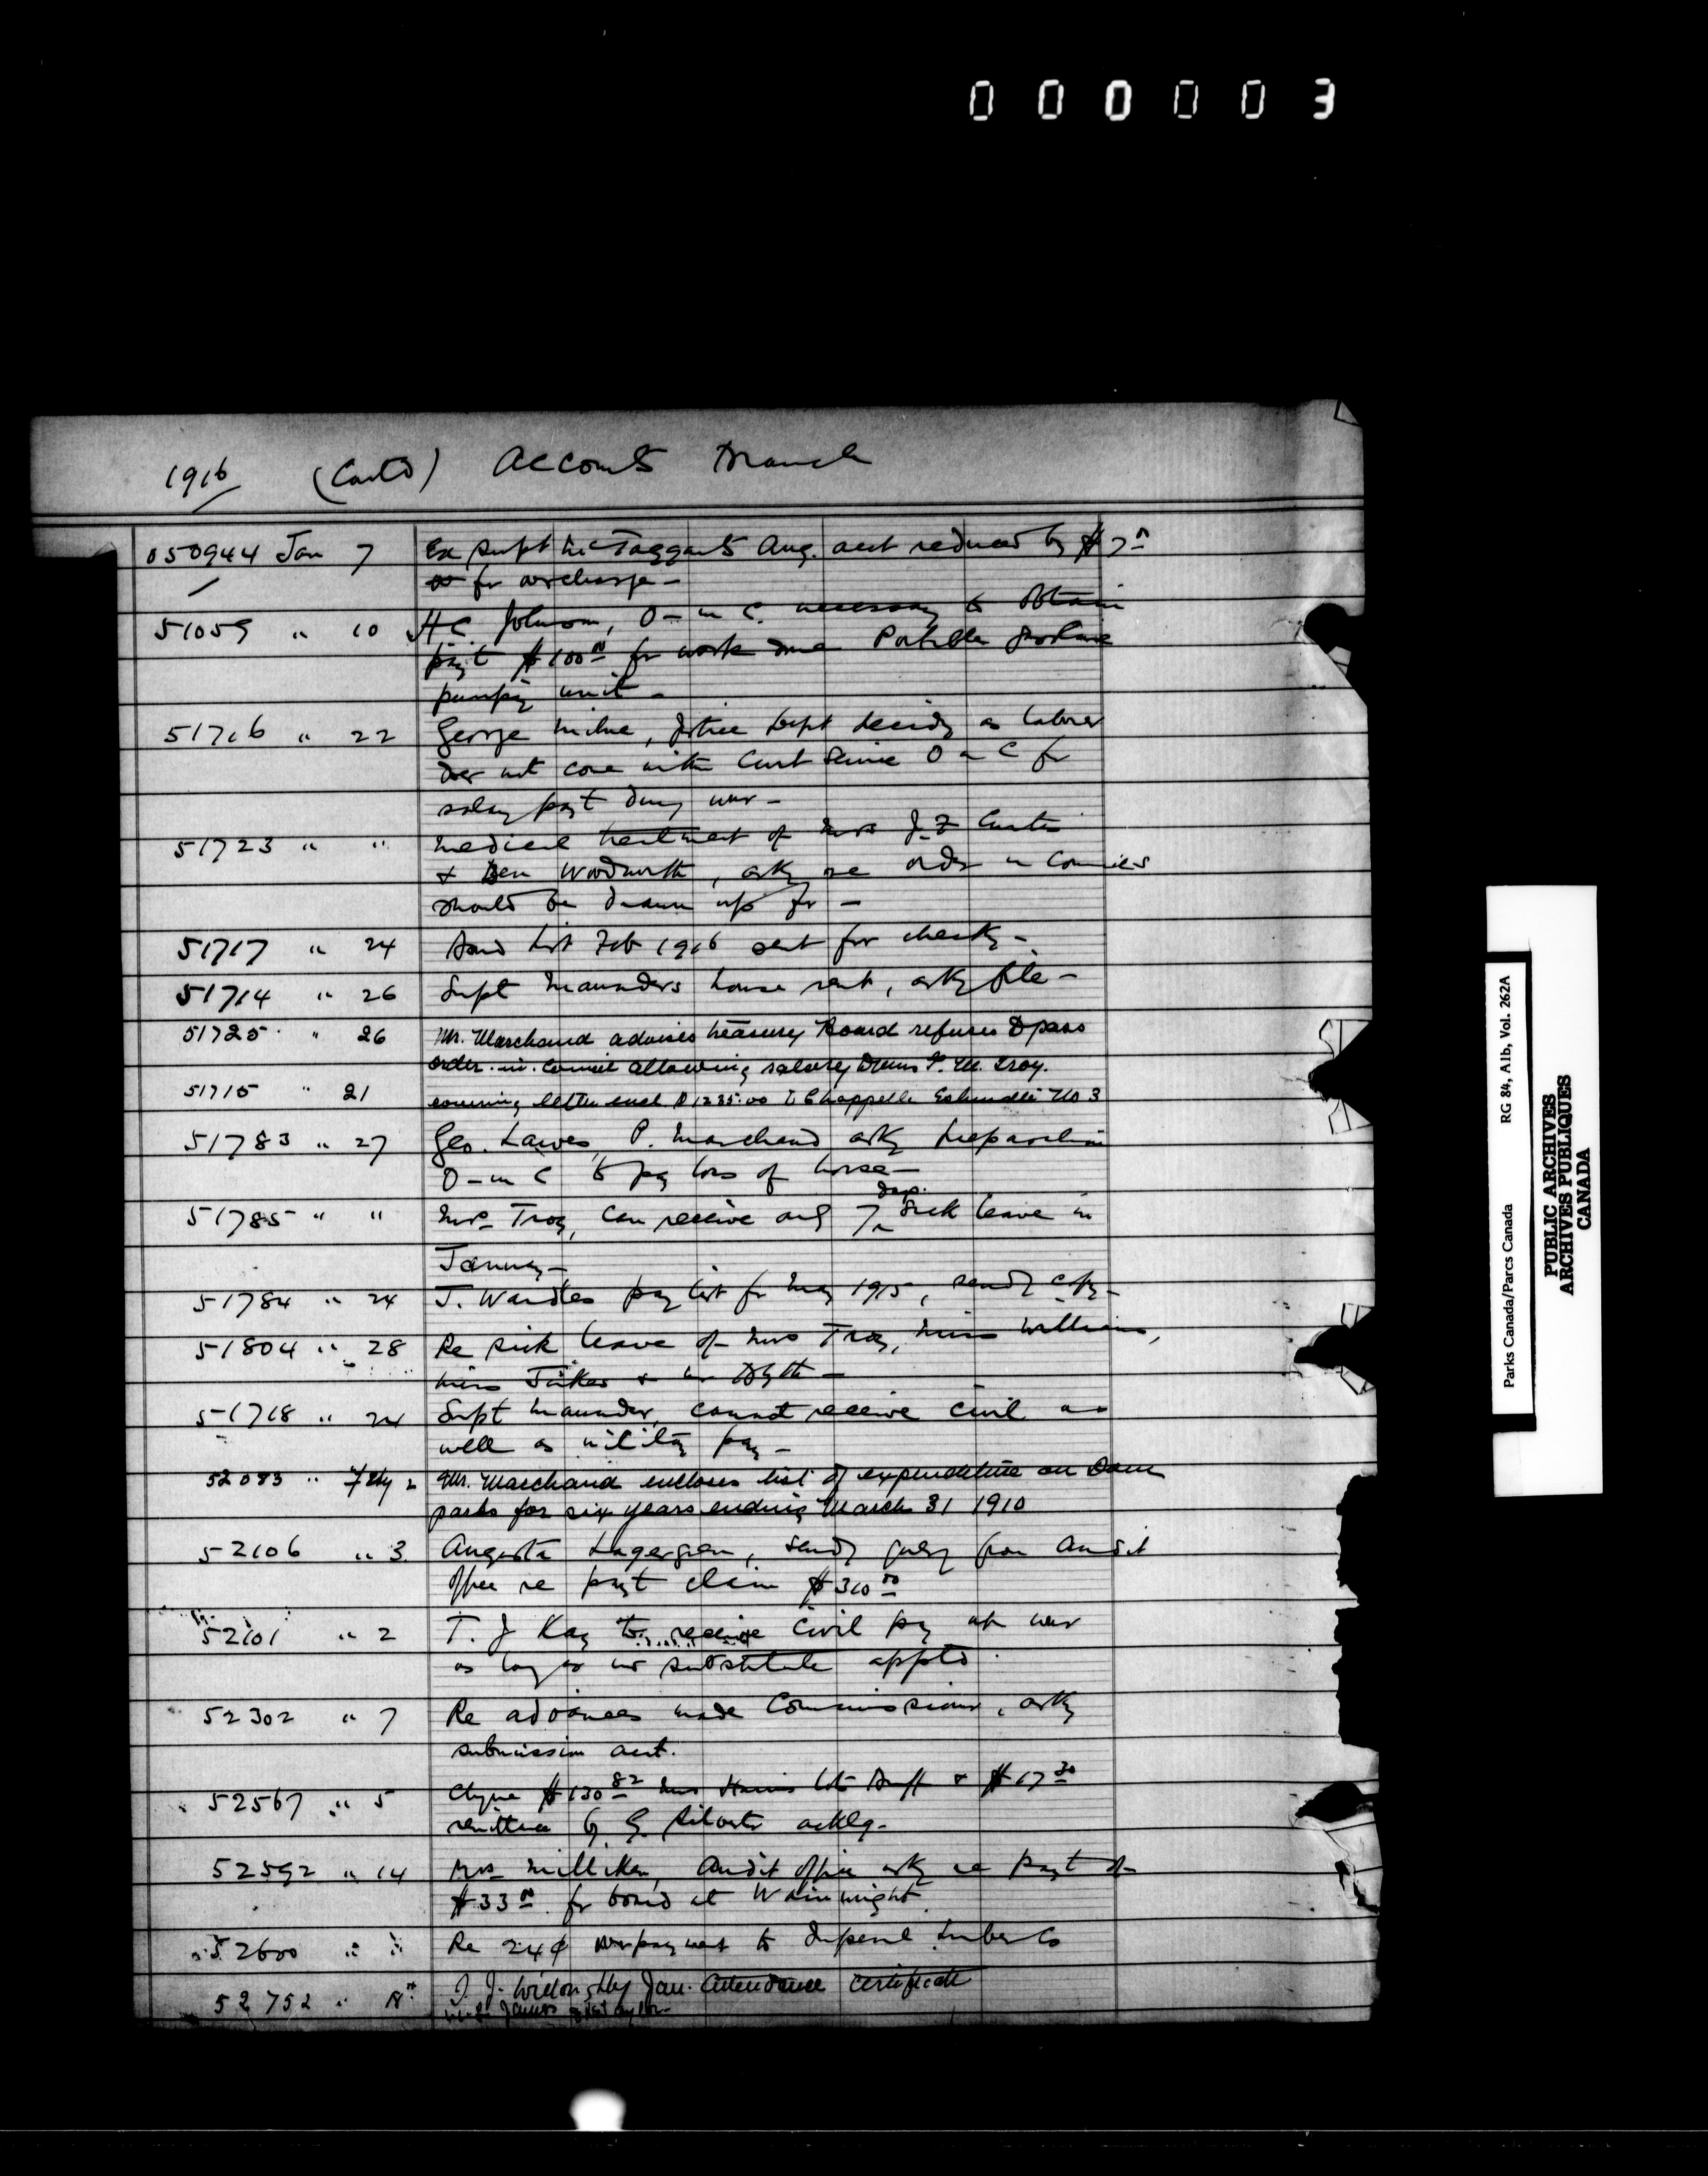 000003
1916 (Contd) Accounts Branch
050944 Jan 7 Ex Supt McTaggarts Aug. acct reduced by $7.00
for overcharge -
51059 " 10 HC Johnson, O-in C. necessary to obtain
payt $100.00 for work done Portable gasoline
pumping unit -
51716 " 22 George Milne, Justice Dept decides as laborer
does not come within Civil Service O in C for
salary payt during war -
51723 " " Medical treatment of Mrs J.F. Curtis
& Ben Woodworth, askg re order in Council
should be drawn up for -
51717 " 24 List Feb 1916 sent for checkg -
51714 " 26 Supt Maunders house rent, askg file -
51725 " 26 Mr. Marchand advises treasury Board refuses to pass
order-in-council allowing salary M. Troy.
51715 " 21 covering letter encl. $1235.00 to Chappelle Estimate No 3
51783 " 27 Geo. Lawes, P. Marchand askg preparation
O-in C to pay loss of horse -
51785 " " Mrs Troy, can receive only 7 days sick leave in
January -
51784 " 24 J. Wardles pay list for May 1915, sendg copy -
51804 " 28 Re sick leave of Mrs Troy, Miss Williams,
Miss & Mr Blyth -
51718 " 24 Supt Maunder, cannot receive civil as
well as military pay -
52083 " Feby 2 Mr. Marchand encloses list of expenditure on Dom
parks for six years ending March 31 1910
52106 " 3 Augusta Lagergren, sendg query from Audit
Office re payt claim $310.00
52101 " 2 T. J Kay to receive civil pay at war
as long as no substitute apptd.
52302 " 7 Re advances made Commissioner, askg
submission acct.
52567 " 5 Cheque $130.82 Mrs Harris lots Banff & $17.30
remittance by G. ackldg -
52592 " 14 Mrs Milliken, Audit Office askg re payt of
$33.00 for board at Wainwright
52600 " " Re 24¢ overpayment to Imperial Lumber Co
52752 " 18 J. J. Willoughby Jan. Attendance certificate
Parks Canada/Parcs Canada RG 84, A1b, Vol. 262A
PUBLIC ARCHIVES
ARCHIVES PUBLIQUES
CANADA